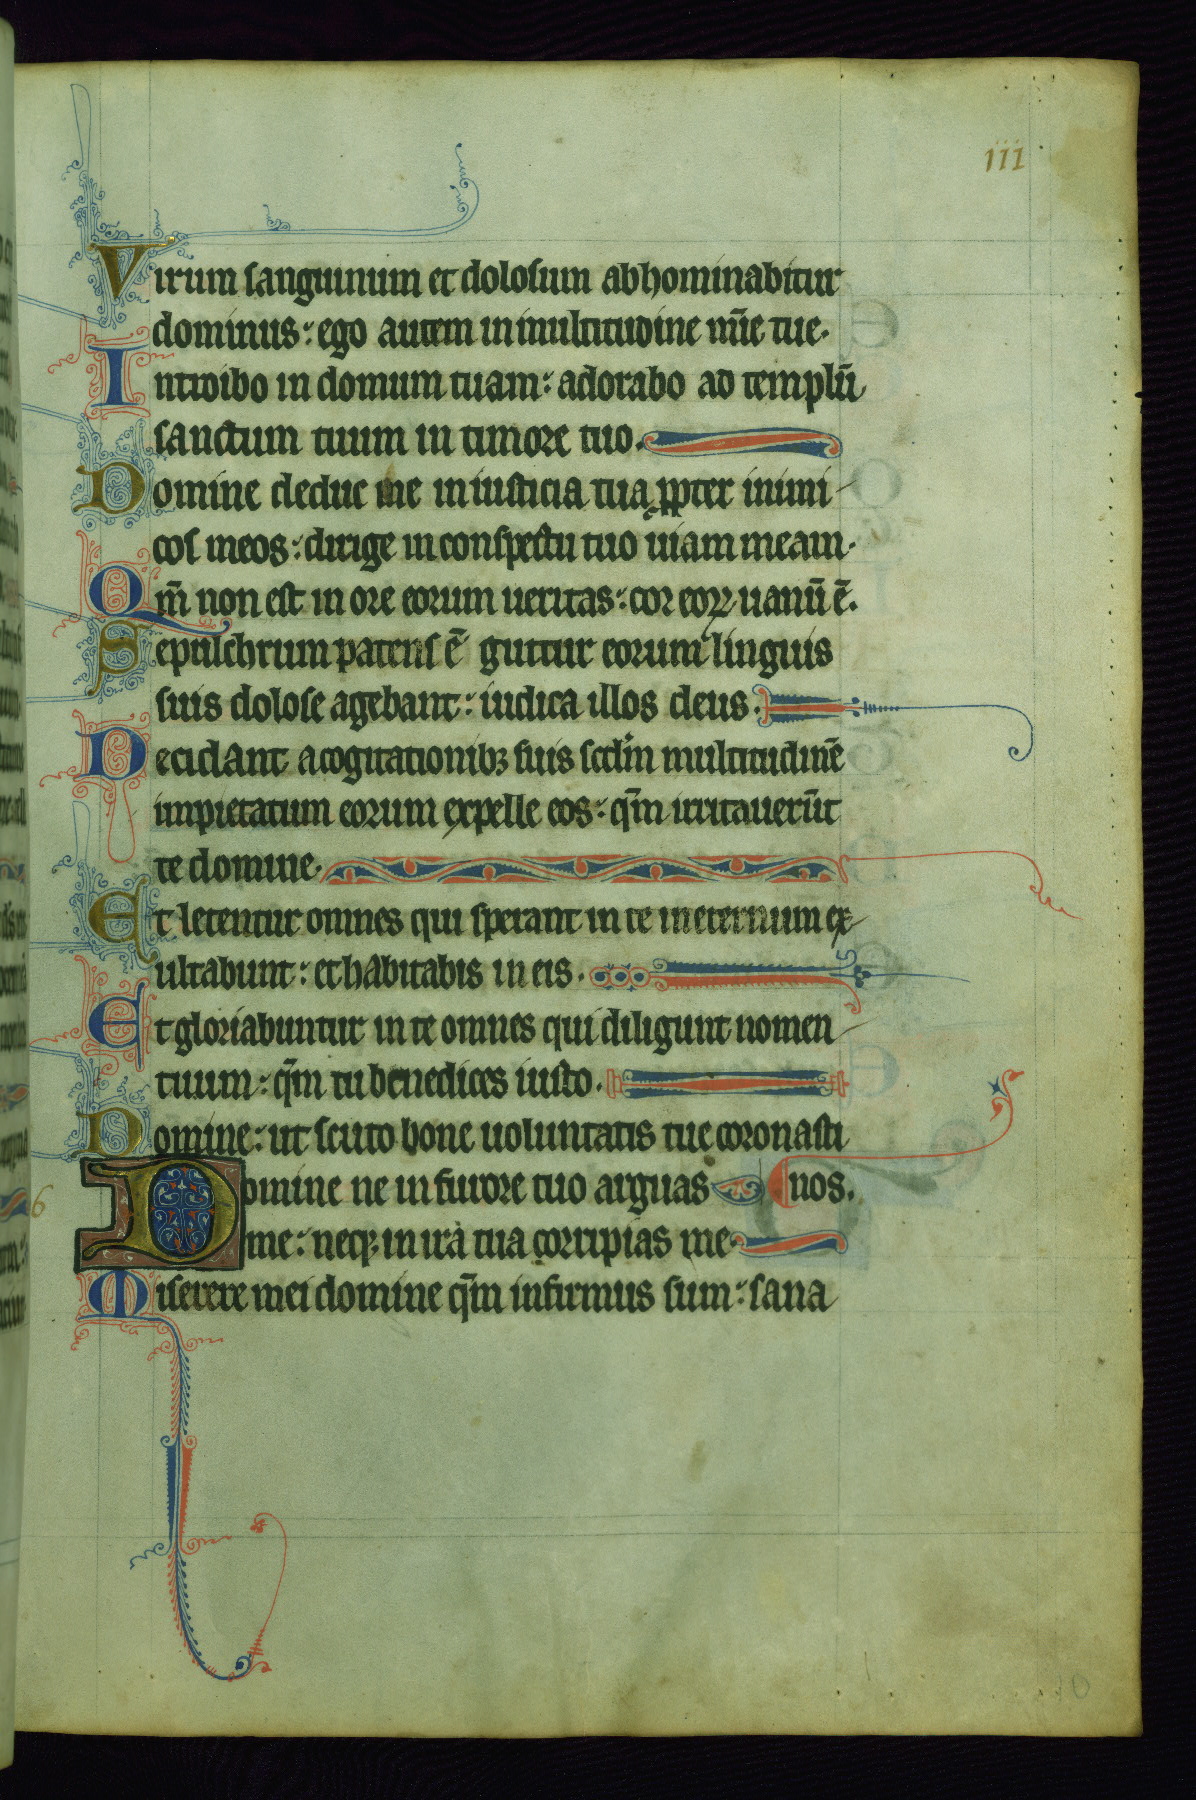 iii
Virum sanguinum et dolosum abhominabitur
dominus: ego autem in multitudine mīe tue.
Introibo in domum tuam: adorabo ad templū
sanctum tuum in timore tuo.
Domine deduc me in iusticia tua ꝓpter inimi
cos meos: dirige in conspectu tuo uiam meam.
Qm̄ non est in ore eorum ueritas: cor eoꝝ uanū ē.
Sepulchrum patens ē guttur eorum linguis
suis dolose agebant: iudica illos deus.
Decidant a cogitationibꝫ suis scdm̄ multitudinē
impietatum eorum expelle eos: qm̄ irritauerūt
te domine.
Et letentur omnes qui sperant in te in eternum ex
ultabunt: et habitabis in eis.
Et gloriabuntur in te omnes qui diligunt nomen
tuum: qm̄ tu benedices iusto.
Domine: ut scuto bone uoluntatis tue coronasti
nos.
6
Domine ne in furore tuo arguas
me: neqꝫ in ira tua corripias me.
Miserere mei domine qm̄ infirmus sum: sana
10